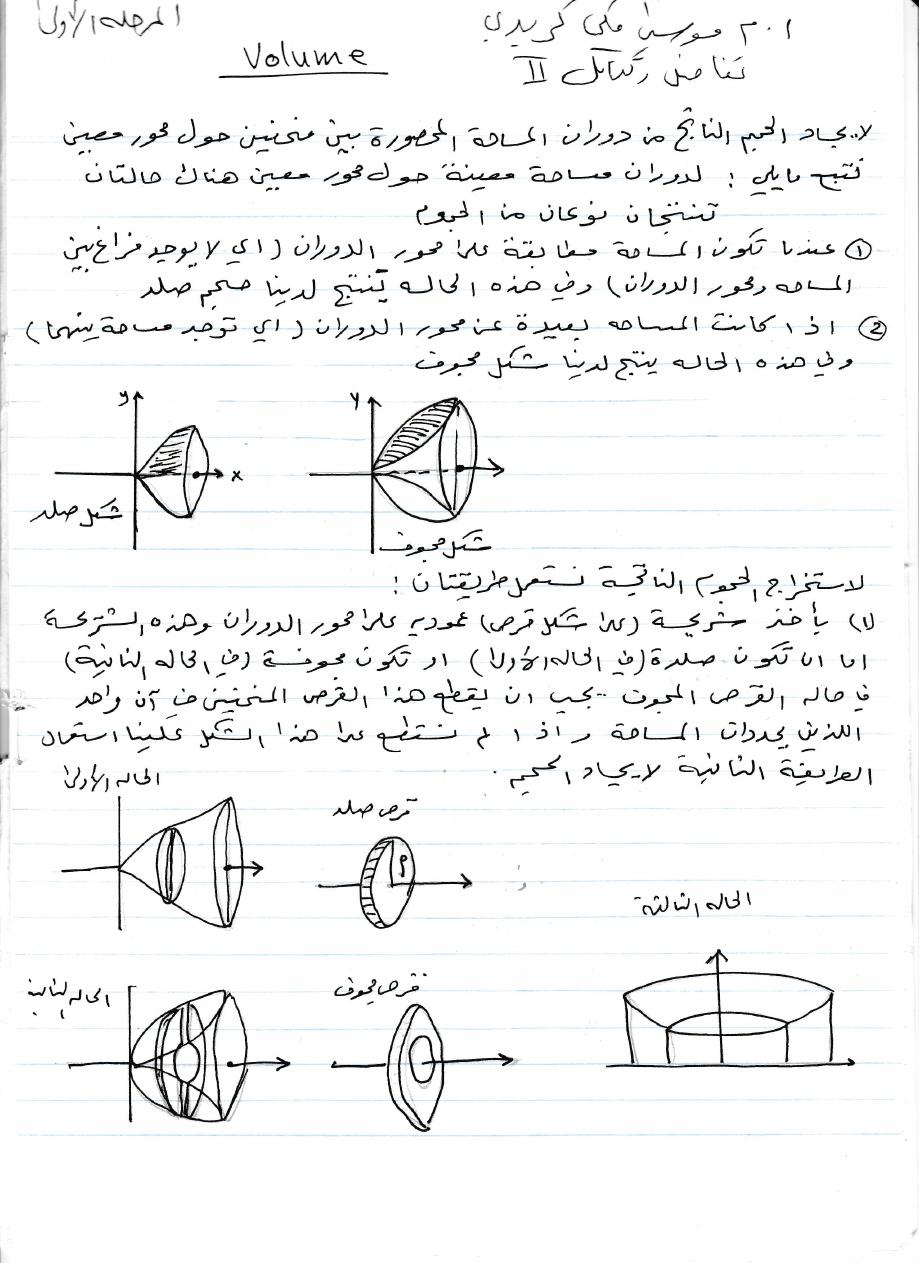 المرحلة الأولى
أ.م موسى مكي كريدي
Volume
تفاضل وتكامل II
لايجاد الحجم الناتج من دوران المساحة المحصورة بين منحنين حول محور معين
نتبع مايلي : لدوران مساحة معينة حول محور معين هناك حالتان
تنتجان نوعان من الحجوم
① عندما تكون المساحة مطابقة على محور الدوران (اي لا يوجد فراغ بين
المساحه ومحور الدوران) وفي هذه الحاله يُنتج لدينا حجم صلد
② اذا كانت المساحه بعيدة عن محور الدوران (اي توجد مساحة بينهما)
وفي هذه الحاله ينتج لدينا شكل مجوف
y
x
شكل صلد
y
شكل مجوف
لاستخراج الحجوم الناتجة نستعمل طريقتان :
(1 يأخذ شريحة (على شكل قرص) عموديه على محور الدوران وهذه الشريحة
اما ان تكون صلدة (في الحاله الأولى) او تكون مجوفة (في الحاله الثانية)
في حاله القرص المجوف يجب ان يقطع هذا القرص المنحنين في آن واحد
اللذين يحددان المساحة واذا لم نستطع على هذا الشكل علينا استعمال
الطريقة الثانية لايجاد الحجم.
الحاله الأولى
قرص صلد
الحاله الثالثة
الحاله الثانية
قرص مجوف